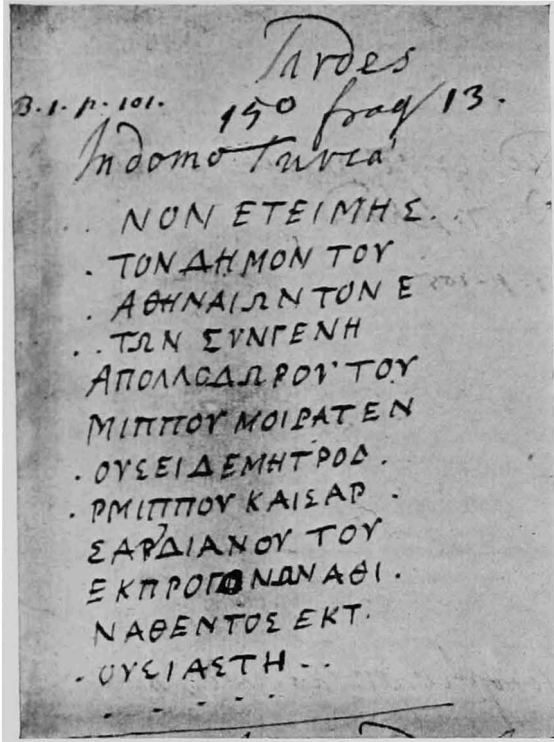 Sardes
B.1.p.101. 15° frag/13.
In domo Turca
.. ΝΟΝ ΕΤΕΙΜΗΣ..
. ΤΟΝ ΔΗΜΟΝ ΤΟΥ
. ΑΘΗΝΑΙΩΝ ΤΟΝ Ε
.. ΤΩΝ ΣΥΝΓΕΝΗ
ΑΠΟΛΛΟΔΩΡΟΥ ΤΟΥ
ΜΙΠΠΟΥ ΜΟΙΡΑΤΕΝ
. ΟΥΣΕΙ ΔΕΜΗΤΡΟΔ.
. ΡΜΙΠΠΟΥ ΚΑΙΣΑΡ .
ΣΑΡΔΙΑΝΟΥ ΤΟΥ
ΕΚΠΡΟΓΟΝΩΝ ΑΘΙ.
ΝΑΘΕΝΤΟΣ ΕΚΤ.
. ΟΥΣΙΑΣΤΗ - .
. . . . .